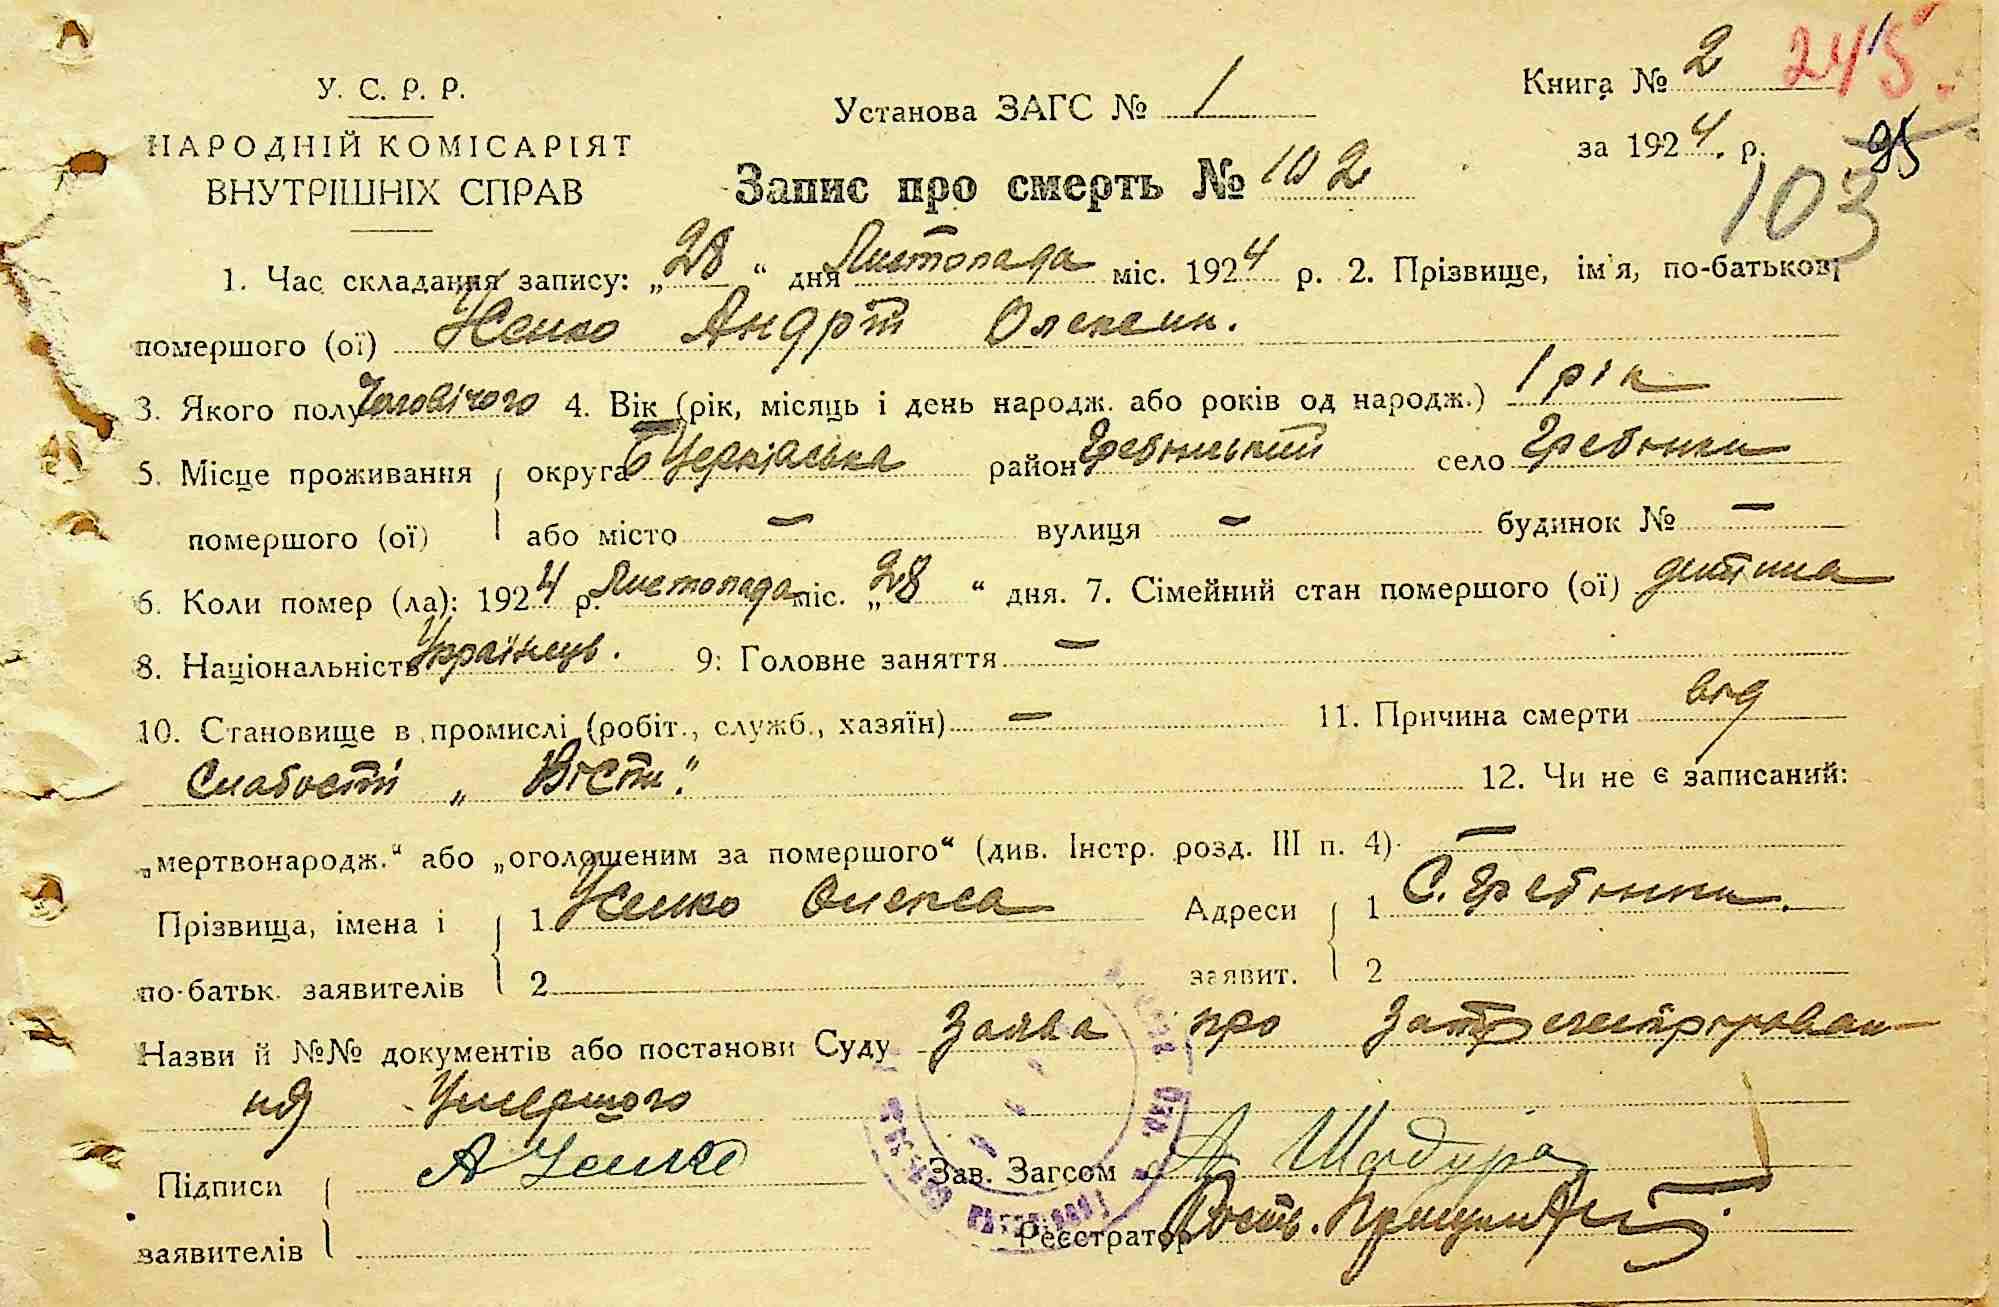 У. С. Р. Р.
НАРОДНІЙ КОМІСАРІЯТ
ВНУТРІШНІХ СПРАВ
Установа ЗАГС № 1
Книга № 2 245.
за 1924 р. 95
103
Запис про смерть № 102
1. Час складання запису: „28“ дня Листопада міс. 1924 р. 2. Прізвище, ім'я, по-батькові
помершого (ої) Усенко Андрій Олексин.
3. Якого полу Чоловічого 4. Вік (рік, місяць і день народж. або років од народж.) 1 рік
5. Місце проживання округа Б Черкаська район село Гребінки
помершого (ої) або місто — вулиця — будинок № —
6. Коли помер (ла): 1924 р. Листопада міс. „28“ дня. 7. Сімейний стан помершого (ої) дитина
8. Національність Українець. 9. Головне заняття —
10. Становище в промислі (робіт., служб., хазяїн) — 11. Причина смерти від
Слабости „
12. Чи не є записаний:
„мертвонародж.“ або „оголошеним за помершого“ (див. Інстр. розд. III п. 4) —
Прізвища, імена і 1 Усенко Олекса Адреси 1 С. Гребінки.
по-батьк. заявителів 2 заявит. 2
Назви й №№ документів або постанови Суду Заява про
ня Умершого
Підписи А Усенко Зав. Загсом А Шадура
заявителів Реєстратор